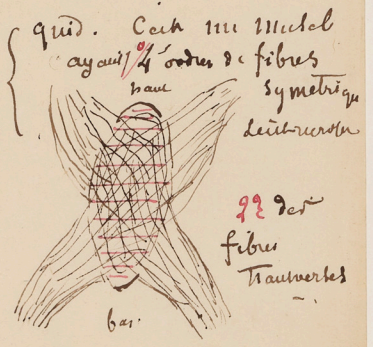 quid. C'est un muscl
ayant 4 ordres de fibres
haut
symetriqu
22 des
fibres
transverses
bas.